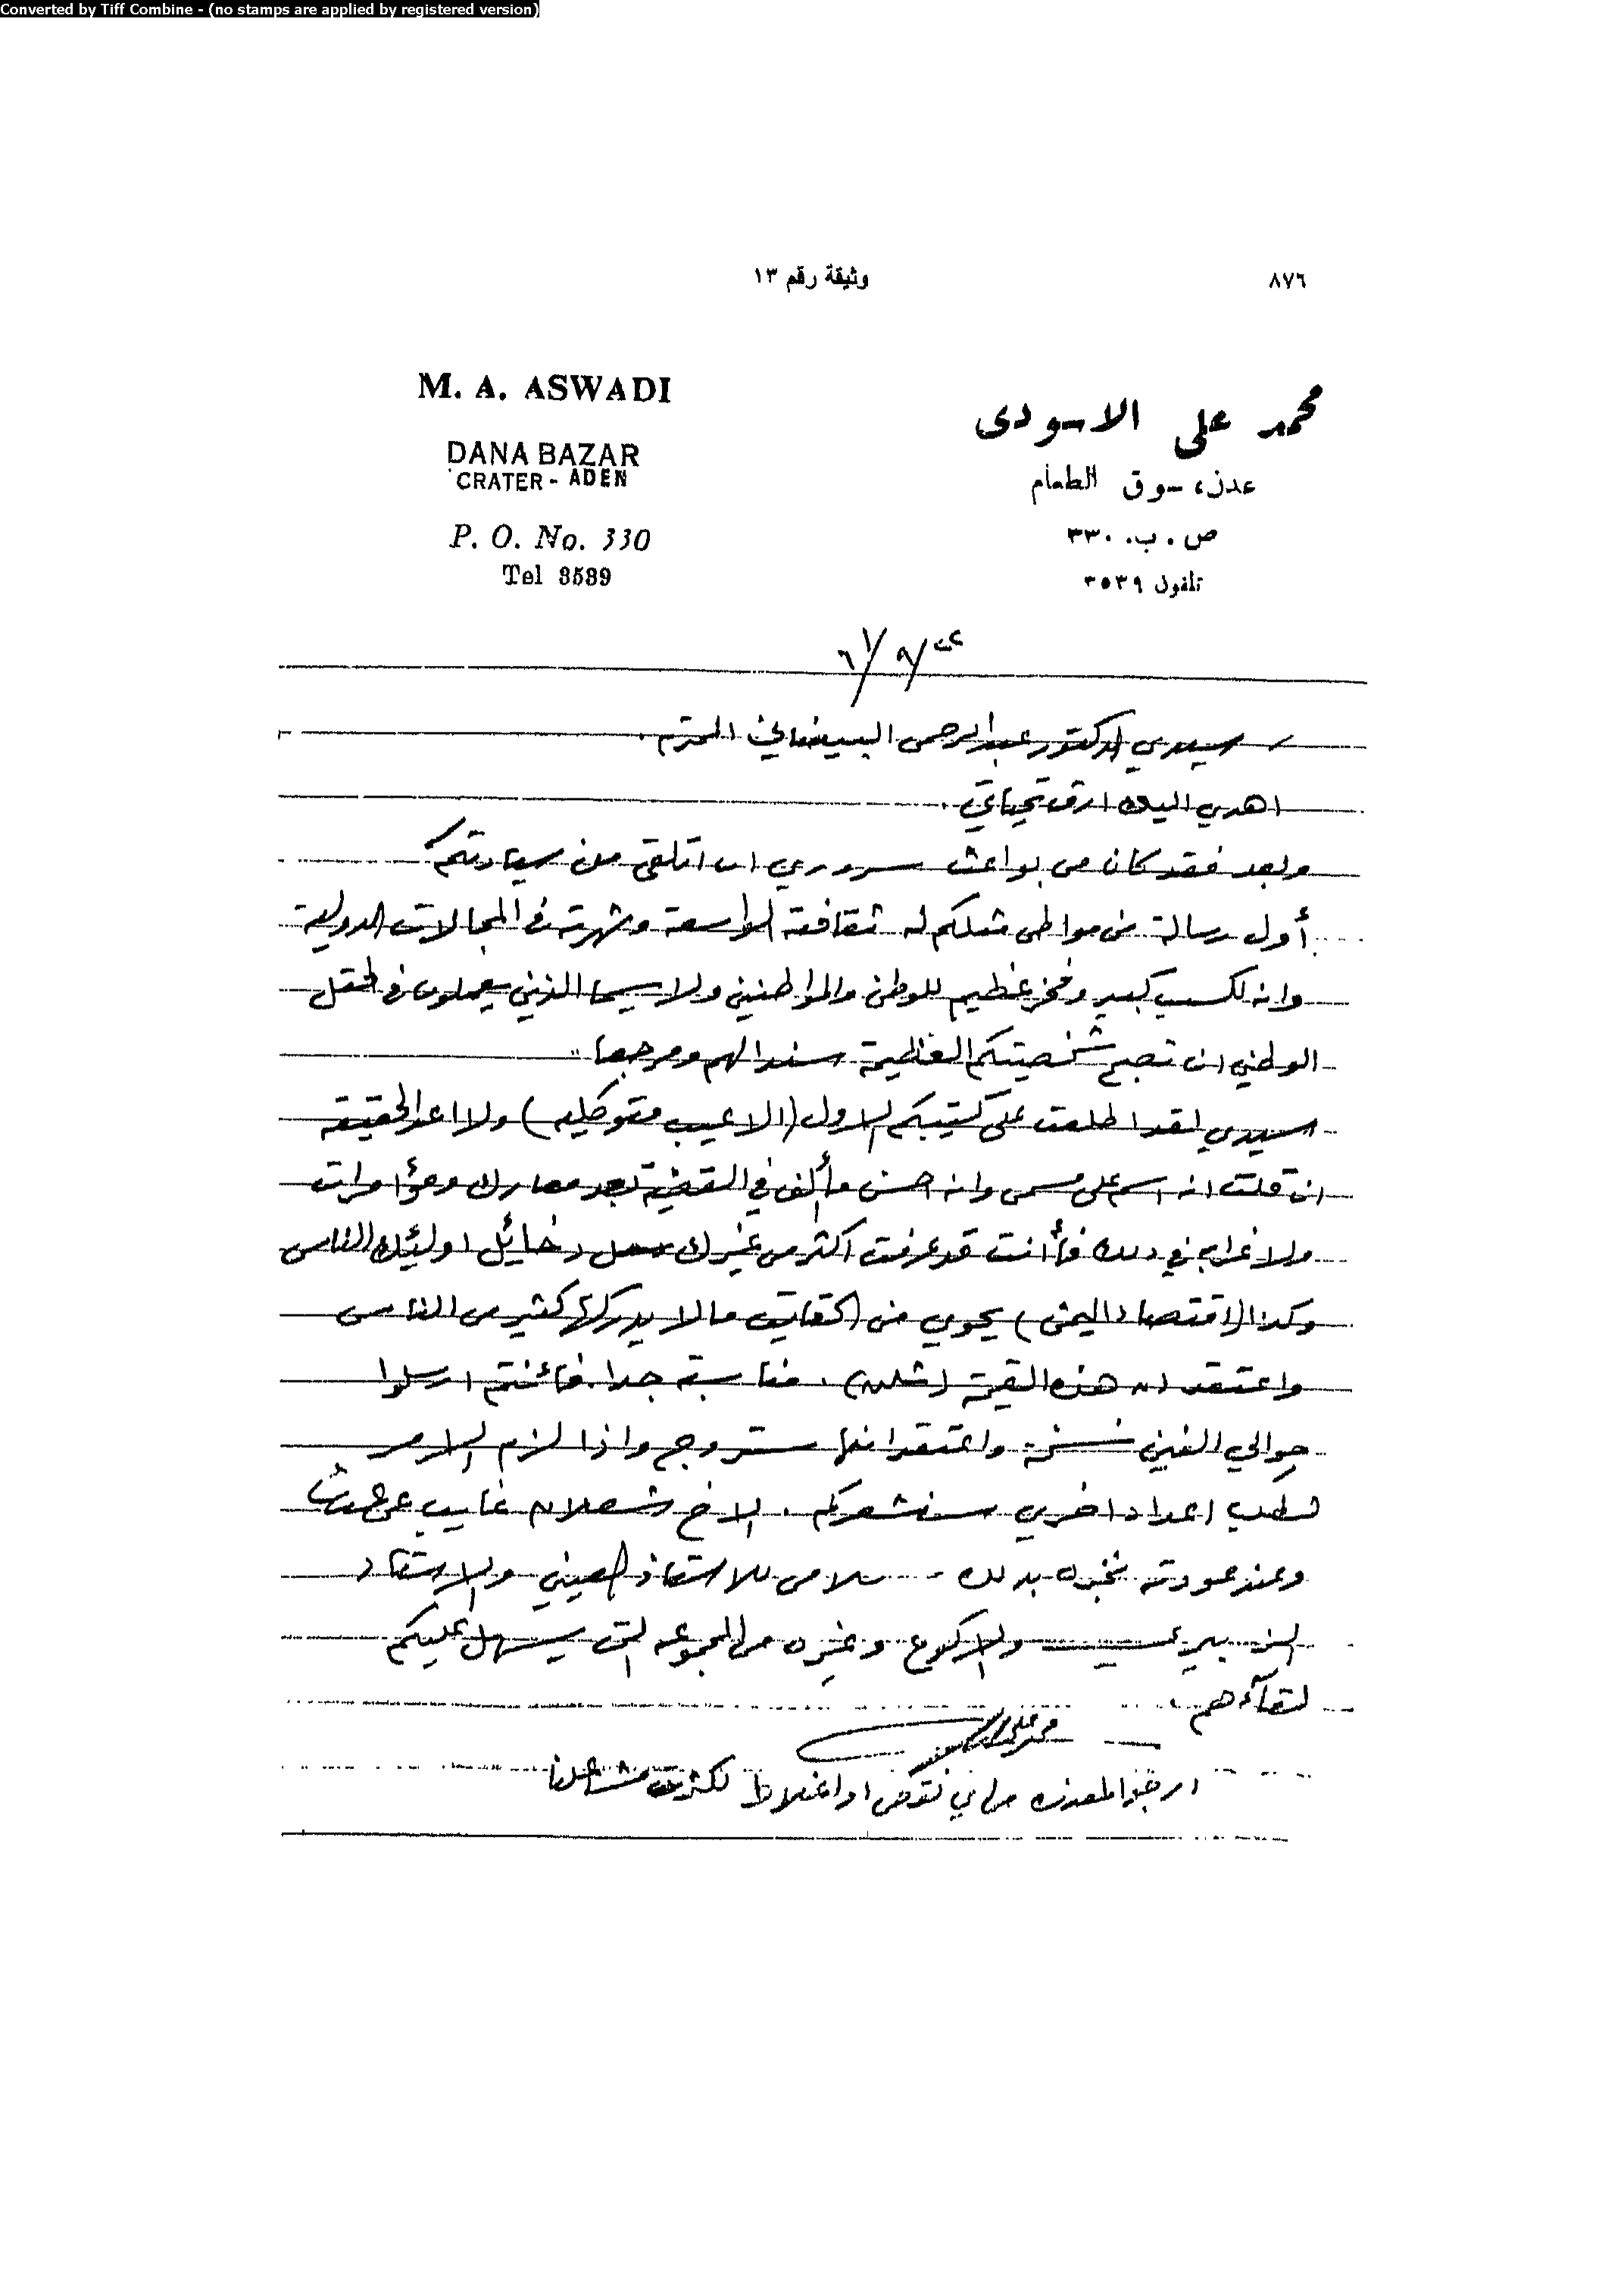 Converted by Tiff Combine - (no stamps are applied by registered version)
٨٧٦
وثيقة رقم ١٣
M. A. ASWADI
DANA BAZAR
CRATER - ADEN
P. O. No. 330
Tel 3539
محمد علي الاسودى
عدن، سوق الطعام
ص . ب. ٣٣٠
تلفون ٣٥٣٩
سيدي الدكتور عبد الرحمن البيضاني المحترم .
اهدي اليك ارق تحياتي .
وبعد فقد كان من بواعث سروري ان اتلقى من سيادتكم
أول رسالة من مواطن مثلكم له ثقافته الواسعة وشهرته في المجالات الدولية
وانه لكسب كبير وفخر عظيم للوطن والمواطنين ولا سيما الذين يعملون في الحقل
الوطني ان تصبح شخصيتكم العظيمة سندا لهم ومرجعا ..
سيدي لقد اطلعت على كتيبكم الاول (الاعيب متوكليه) ولا اعدو الحقيقة
ان قلت انه اسم على مسمى وانه احسن ما ألف في القضية بعد معارك ومؤامرات
ولا غرابة في ذلك فأنت قد عرفت اكثر من غيرك دخائل اولئك الناس
وكذا (اقتصاد اليمن) يحوي من الحقايق ما لا يدركها كثير من الناس
واعتقد ان هذه القيمة (شلن) . مناسبة جدا . فائنتم ارسلوا
حوالي الفين نسخة واعتقد انها ستروج واذا لزم الامر
لطلب اعداد اخرى سنشعركم . الاخ شعلان غايب عن عدن
وعند عودته نخبره بذلك - سلامي للاستاذ العيني والاستاذ
الزبيري والاكوع وغيره من المجموعه التي يسهل عليكم
لقآءهم .
محمد علي الاسودي
ارجو المعذره من اي نقص او اغلاط لكثرت مشاغلنا